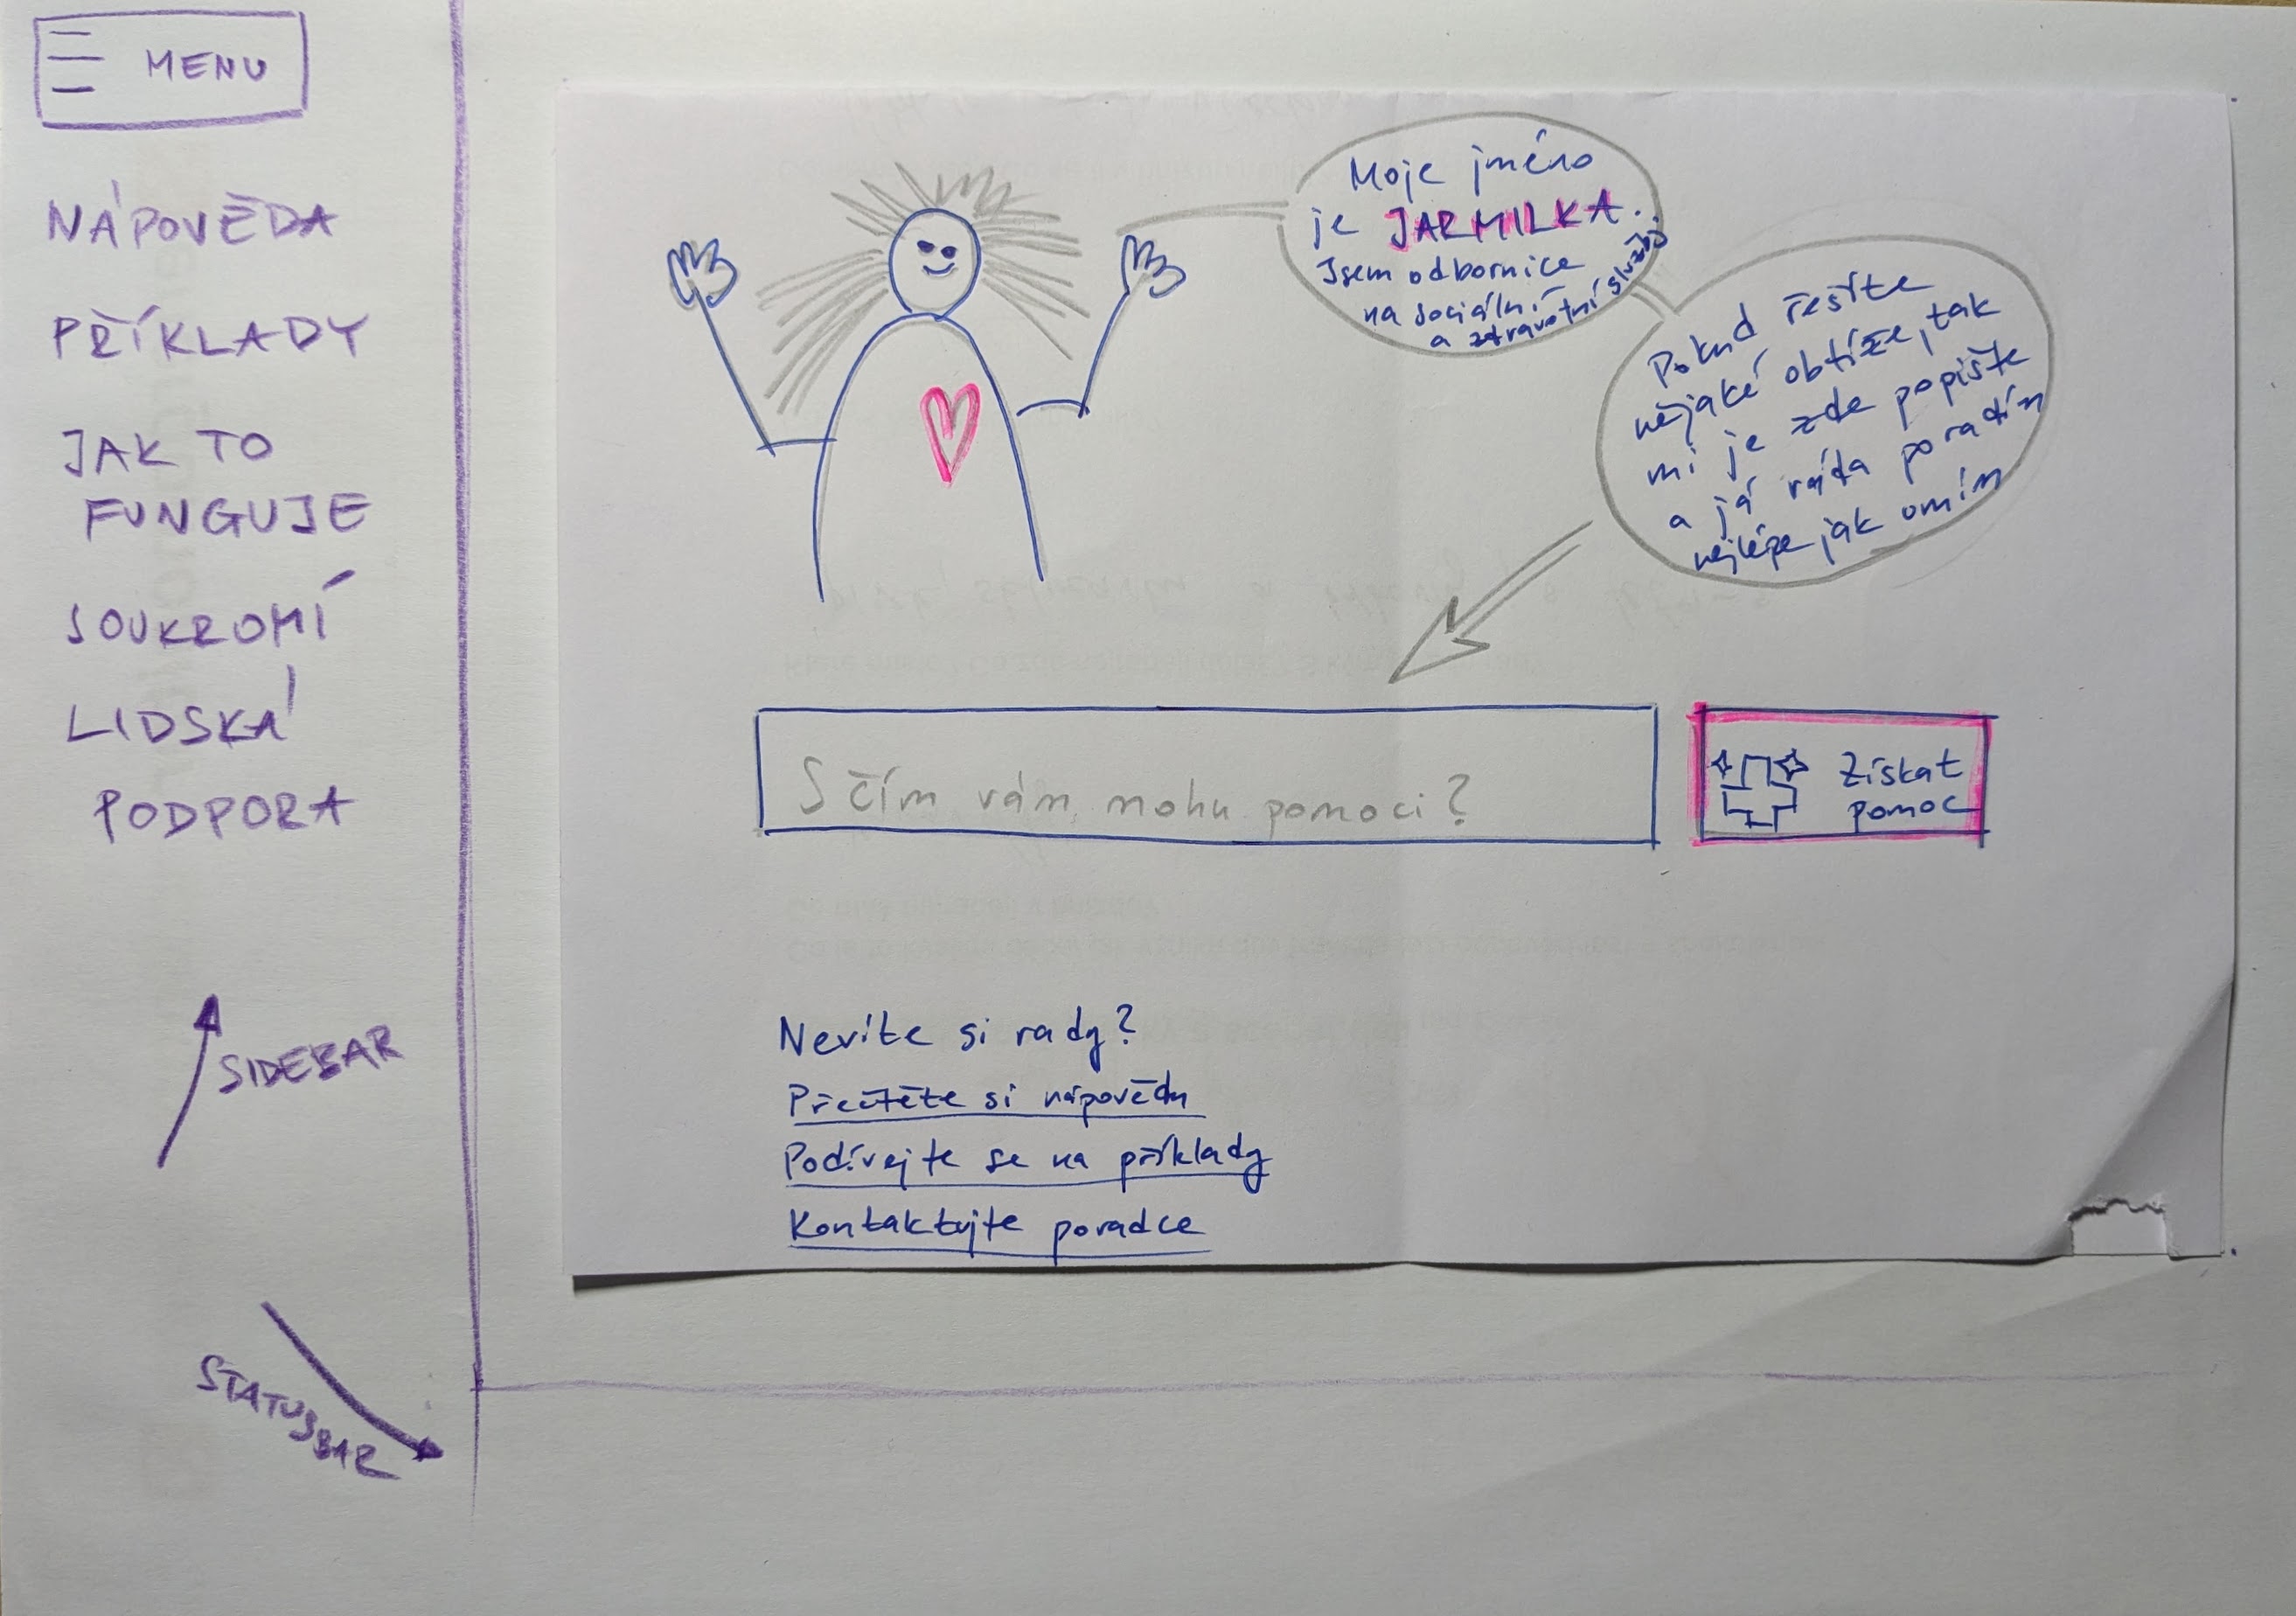 MENU
NÁPOVĚDA
PŘÍKLADY
JAK TO
FUNGUJE
SOUKROMÍ
LIDSKÁ
PODPORA
SIDEBAR
STATUSBAR
Moje jméno
je JARMILKA.
Jsem odbornice
na sociální
a zdravotní služby
Pokud řešíte
nějaké obtíže, tak
mi je zde popište
a já ráda poradím
nejlépe jak umím
S čím vám mohu pomoci?
Získat
pomoc
Nevíte si rady?
Přečtěte si nápovědu
Podívejte se na příklady
Kontaktujte poradce